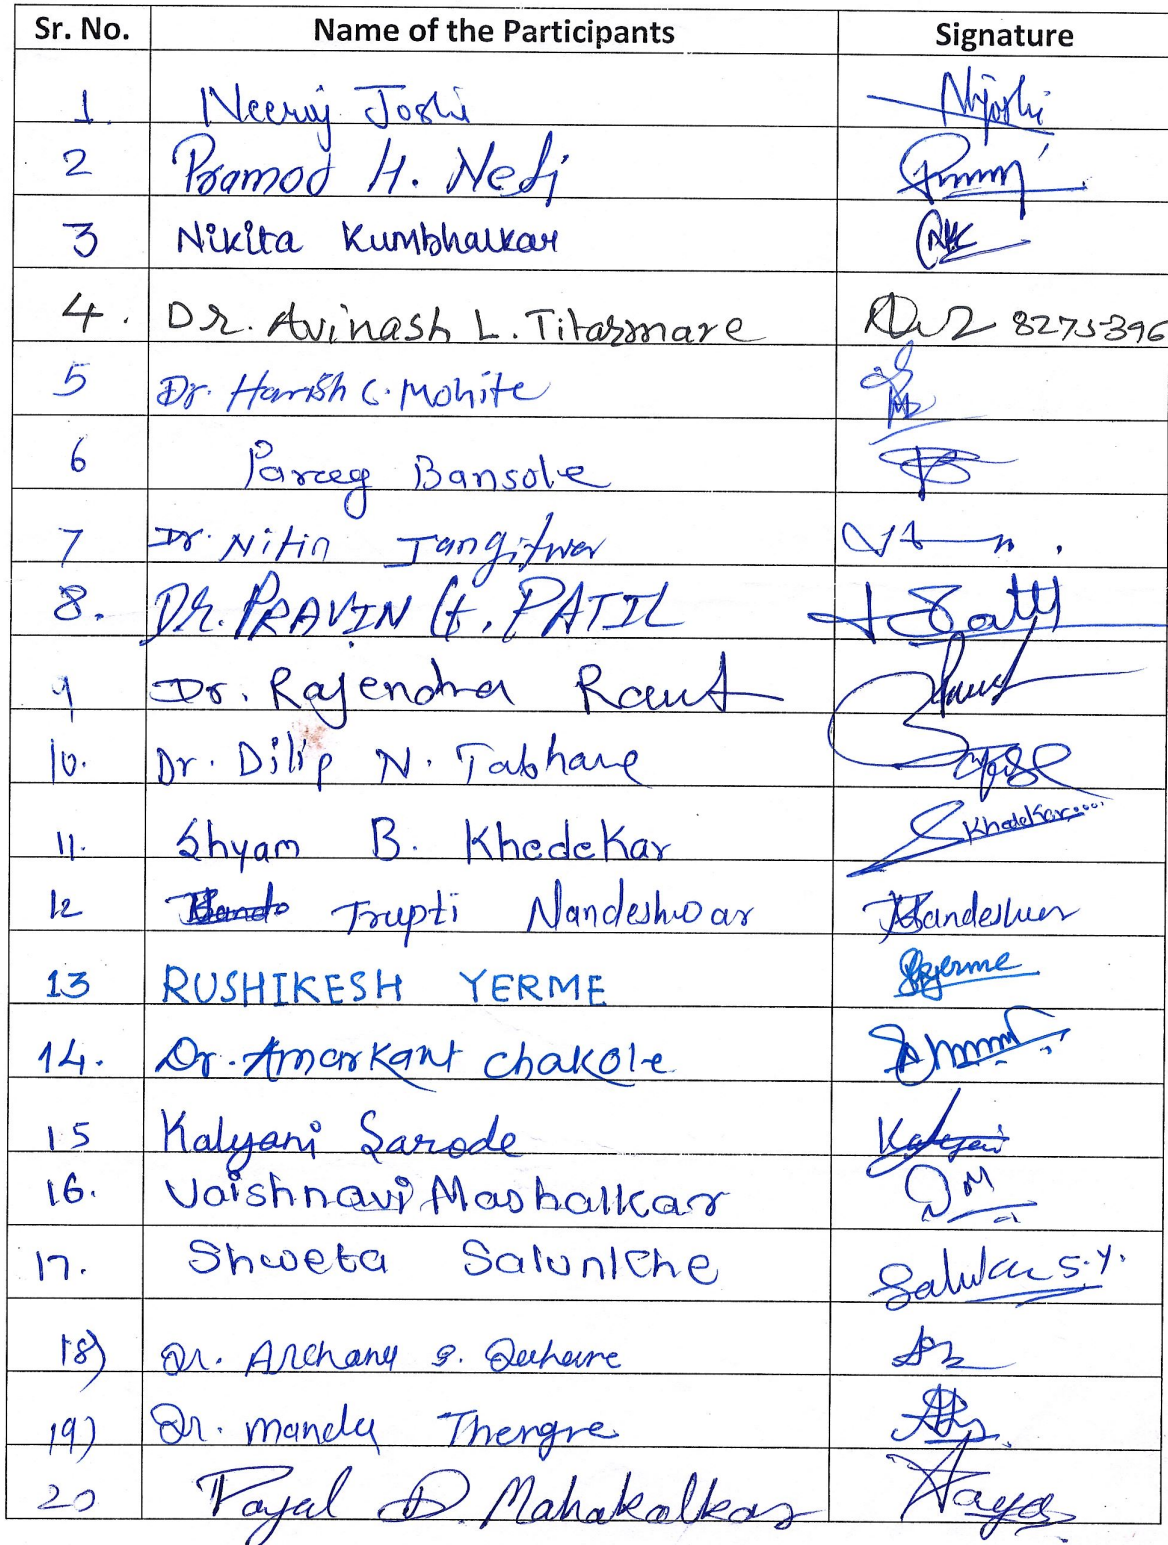 Sr. No. Name of the Participants Signature
1. Neeraj Joshi NJoshi
2 Pramod H. Neti
3 Nikita Kumbhalkar
4. Dr. Avinash L. Titarmare 8275396
5 Dr. Harish C. Mohite
6 Parag Bansole
7 Dr. Nitin Jangitwar
8. DR. PRAVIN G. PATIL Patil
9 Dr. Rajendra Raut Raut
10. Dr. Dilip N. Tabhane
11. Shyam B. Khedekar Khedekar
12 Trupti Nandeshwar Nandeshwar
13 RUSHIKESH YERME Ryerme
14. Dr. Amarkant Chakole
15 Kalyani Sarode Kalyani
16. Vaishnavi Mashalkar
17. Shweta Salunkhe S.Y.
18) Dr. Archana S.
19) Dr. Manda Thengre
20 Payal D. Mahakalkar Payal